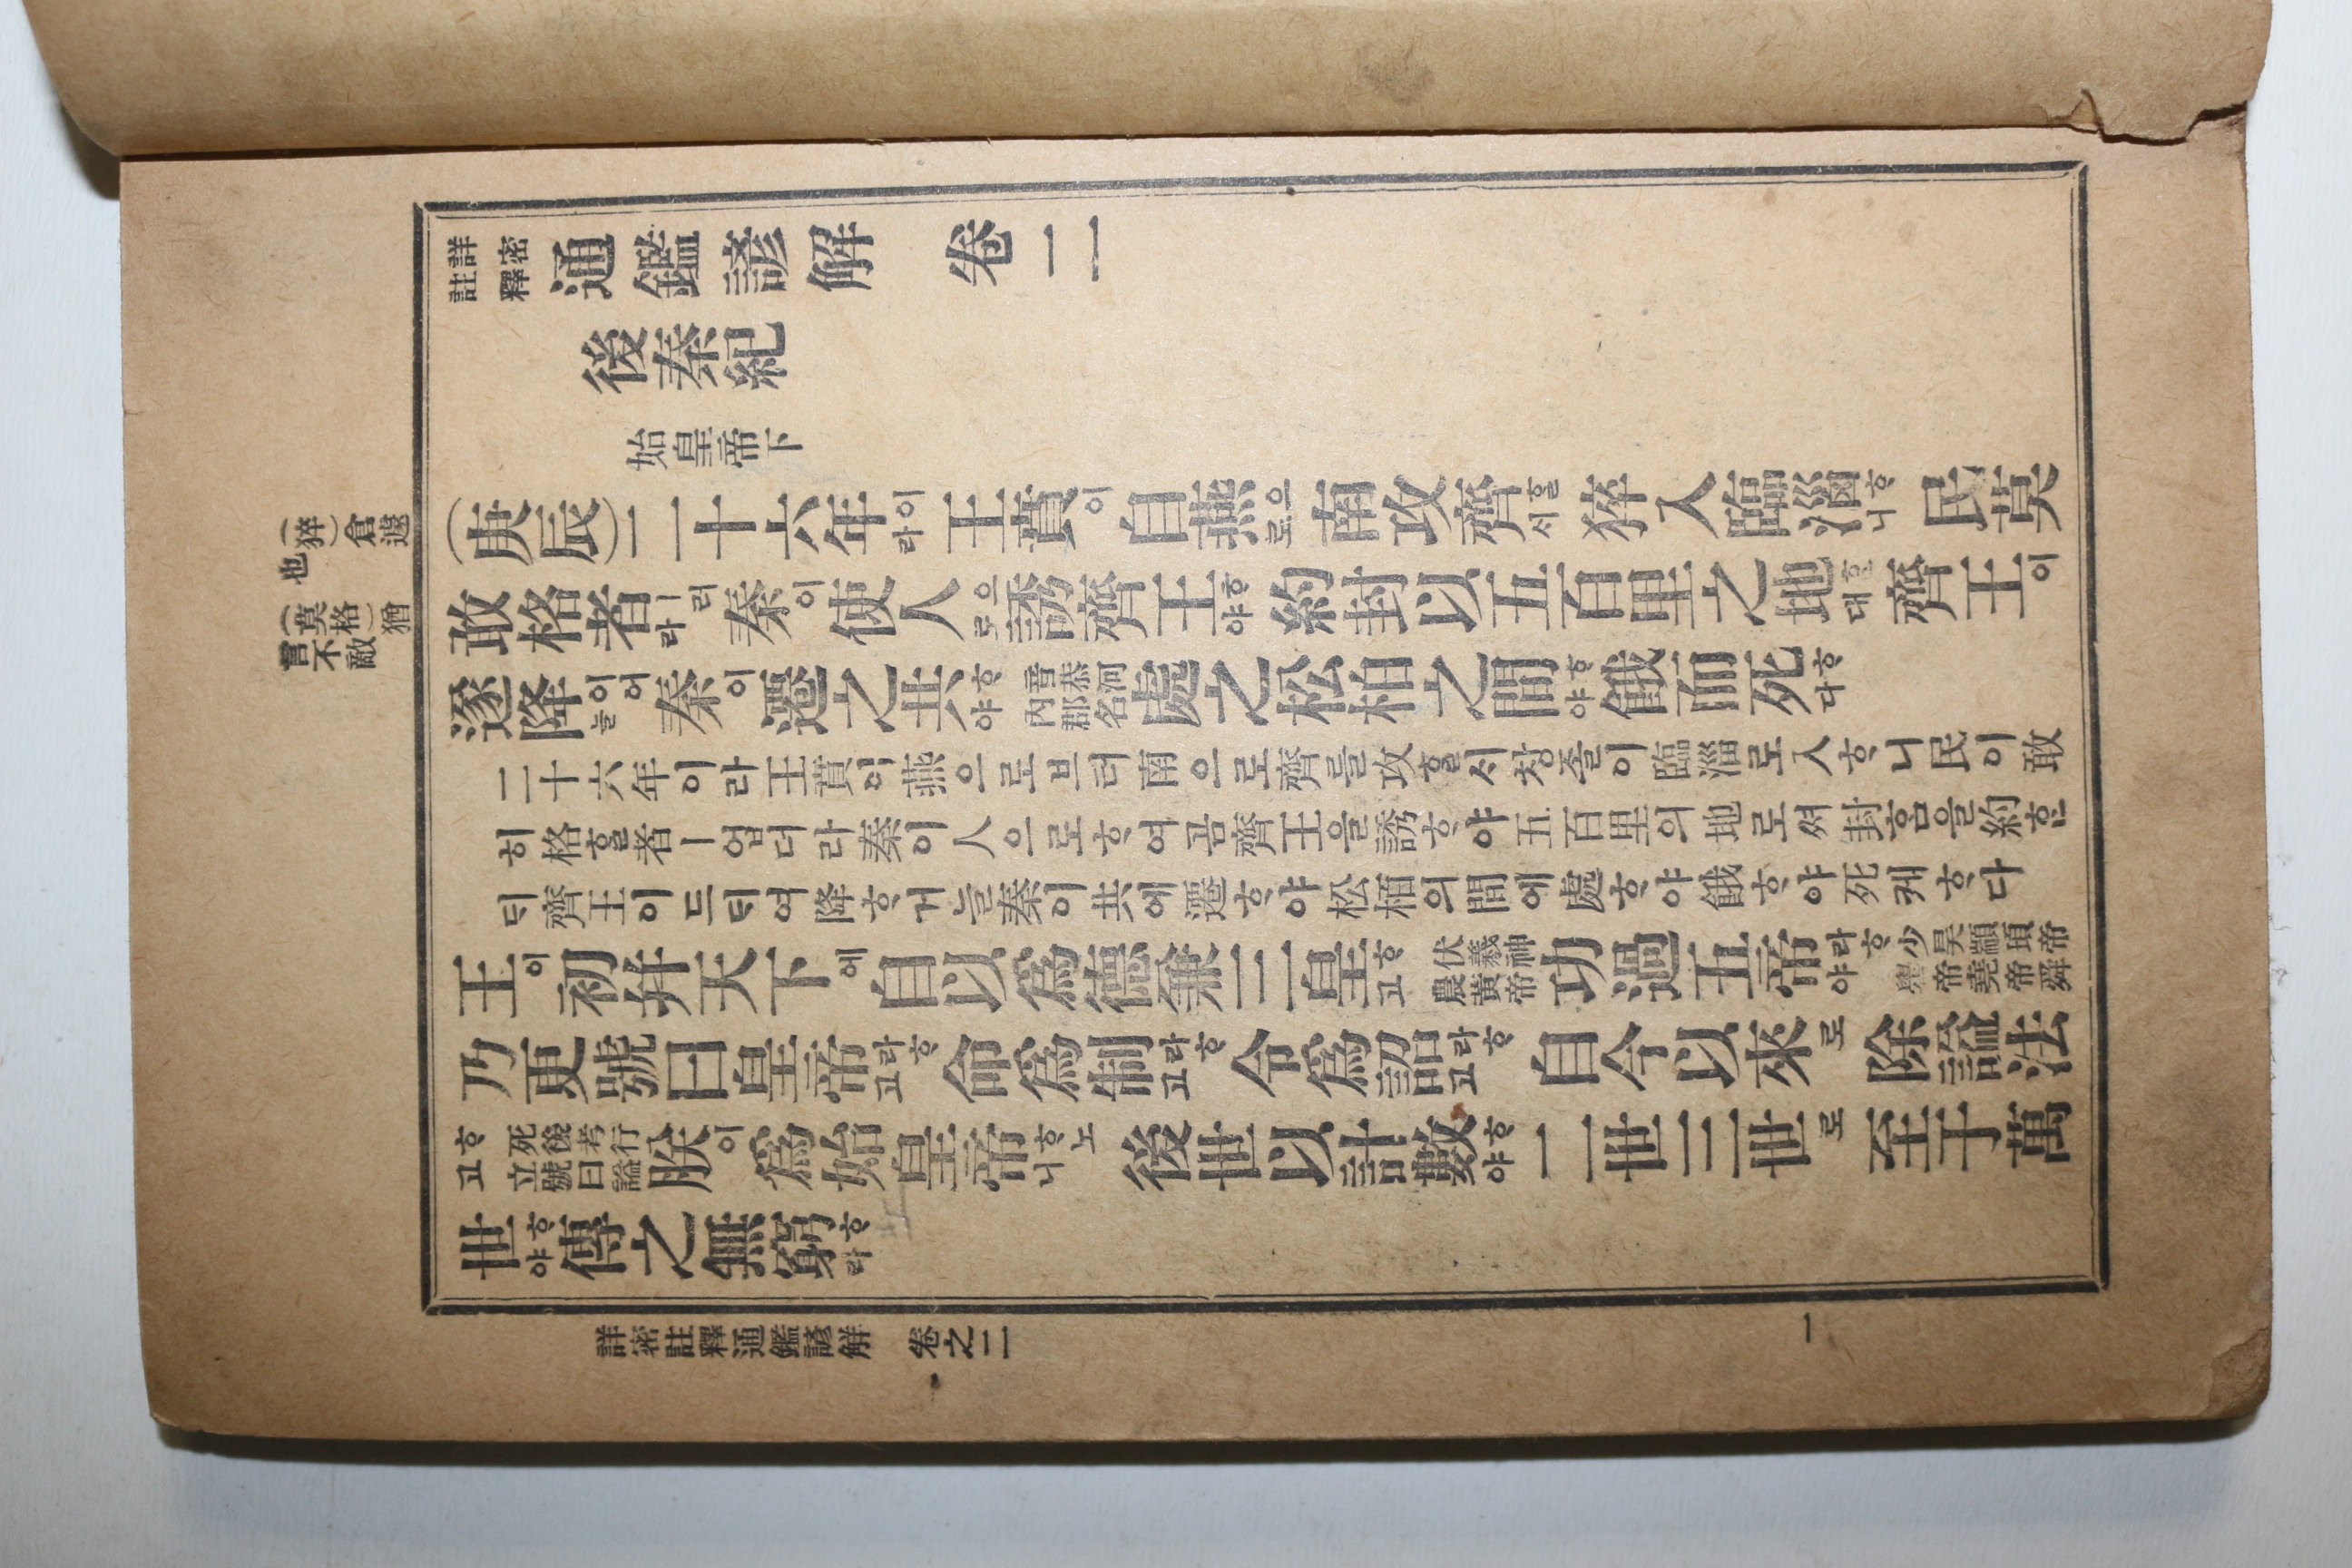 詳密註釋 通鑑諺解 卷二
後秦紀
始皇帝下
(庚辰)二十六年이라 王賁이 自燕으로 南攻齊ᄒᆞᆯᄉᆡ 猝入臨淄ᄒᆞ니 民莫
敢格者ㅣ러라 秦이 使人으로 誘齊王ᄒᆞ야 約封以五百里之地ᄒᆞᆫ대 齊王이
遂降이어늘 秦이 遷之共ᄒᆞ야 音恭河內郡名 處之松柏之間ᄒᆞ야 餓而死ᄒᆞ다
二十六年이라 王賁이 燕으로브터 南으로 齊를 攻ᄒᆞᆯᄉᆡ 창졸이 臨淄로 入ᄒᆞ니 民이 敢
히 格ᄒᆞᆯ 者ㅣ 업더라 秦이 人으로 ᄒᆞ여곰 齊王을 誘ᄒᆞ야 五百里의 地로써 封홈을 約ᄒᆞᆫ
ᄃᆡ 齊王이 드ᄃᆡ여 降ᄒᆞ거늘 秦이 共에 遷ᄒᆞ야 松栢의 間에 處ᄒᆞ야 餓ᄒᆞ야 死케 ᄒᆞ다
王이 初幷天下에 自以爲德兼三皇ᄒᆞ고 伏羲神農黃帝 功過五帝라ᄒᆞ야 少昊顓頊帝嚳帝堯帝舜
乃更號曰皇帝라ᄒᆞ고 命爲制라ᄒᆞ고 令爲詔라ᄒᆞ고 自今以來로 除諡法
ᄒᆞ고 死後考行立號曰諡 朕이 爲始皇帝ᄒᆞ노니 後世以計數ᄒᆞ야 二世三世로 至于萬
世ᄒᆞ야 傳之無窮ᄒᆞ라
(猝)倉遽
也
(莫格)猶
言不敵
詳密註釋通鑑諺解 卷之二
一